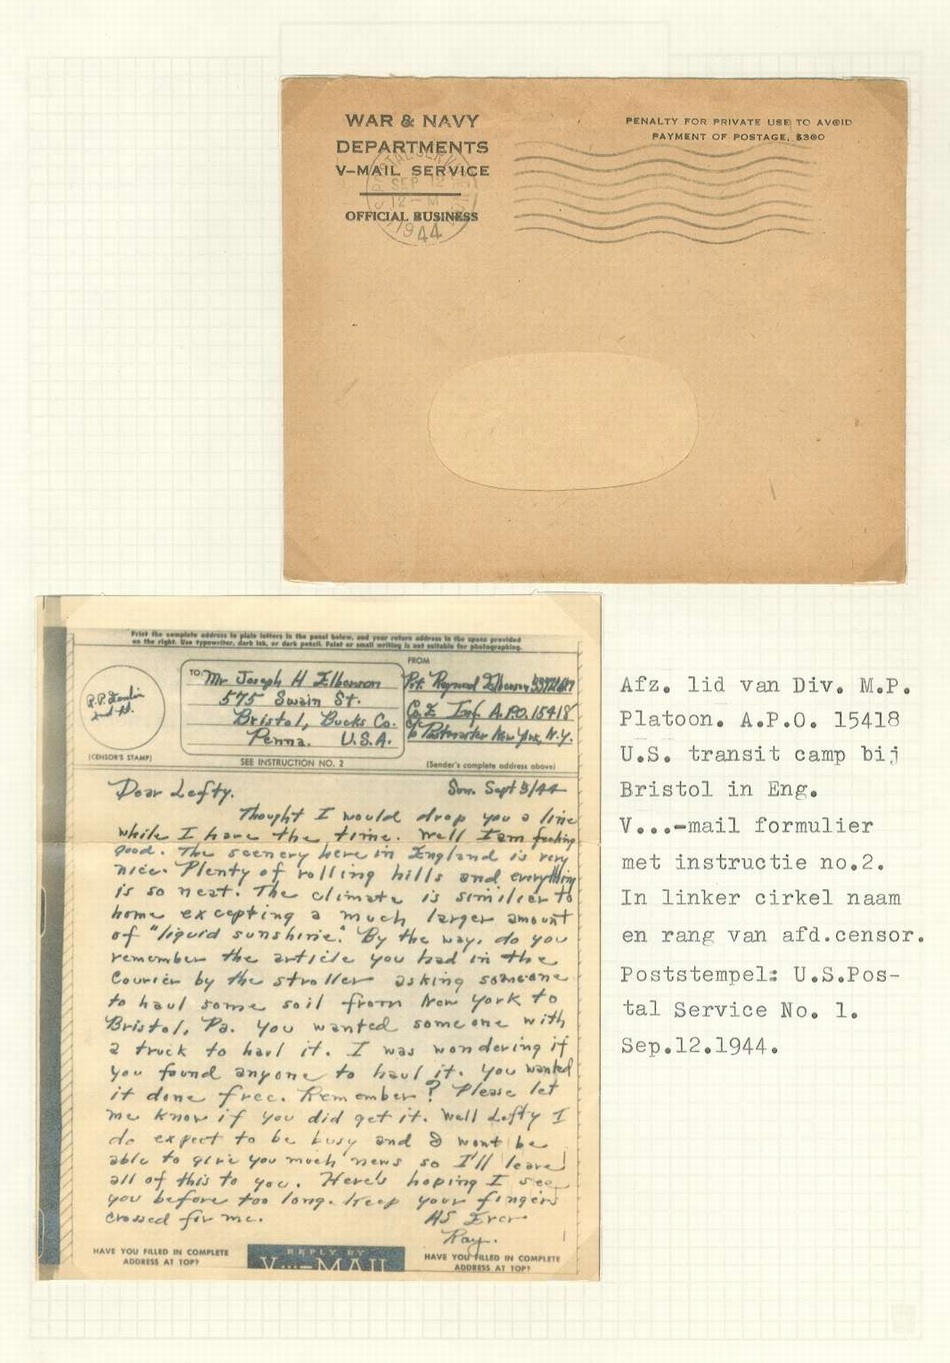 WAR & NAVY
DEPARTMENTS
V-MAIL SERVICE
OFFICIAL BUSINESS
PENALTY FOR PRIVATE USE TO AVOID
PAYMENT OF POSTAGE, $300
SEP 12
12-M
1944
Print the complete address in plain letters in the panel below, and your return address in the space provided
on the right. Use typewriter, dark ink, or dark pencil. Faint or small writing is not suitable for photographing.
TO:
Mr Joseph H Elberson
575 Swain St.
Bristol, Bucks Co.
Penna. U.S.A.
FROM
Pvt. Raymond Elberson
Co. E Inf. A.P.O. 15418
c/o Postmaster New York, N.Y.
(CENSOR'S STAMP)
SEE INSTRUCTION NO. 2
(Sender's complete address above)
Dear Lefty.
Sun. Sept 3/44
Thought I would drop you a line
while I have the time. Well I am feeling
good. The scenery here in England is very
nice. Plenty of rolling hills and everything
is so neat. The climate is similier to
home excepting a much larger amount
of "liquid sunshine". By the way, do you
remember the article you had in the
Courier by the stroller asking someone
to haul some soil from New York to
Bristol, Pa. You wanted someone with
a truck to haul it. I was wondering if
you found anyone to haul it. You wanted
it done free. Remember? Please let
me know if you did get it. Well Lefty I
do expect to be busy and I wont be
able to give you much news so I'll leave
all of this to you. Here's hoping I see
you before too long. Keep your fingers
crossed for me.
As Ever
Ray.
HAVE YOU FILLED IN COMPLETE
ADDRESS AT TOP?
REPLY BY
V...-MAIL
HAVE YOU FILLED IN COMPLETE
ADDRESS AT TOP?
Afz. lid van Div. M.P.
Platoon. A.P.O. 15418
U.S. transit camp bij
Bristol in Eng.
V...-mail formulier
met instructie no.2.
In linker cirkel naam
en rang van afd.censor.
Poststempel: U.S.Pos-
tal Service No. 1.
Sep.12.1944.